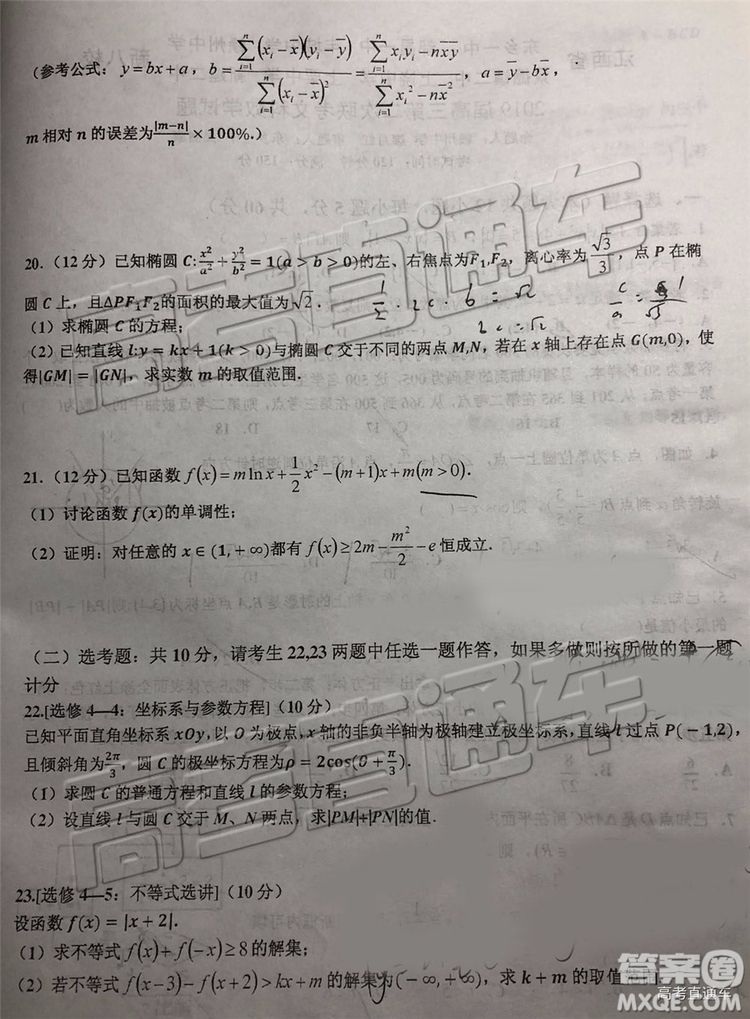 (参考公式：y=bx+a，b=\frac{\sum_{i=1}^{n}(x_i-\overline{x})(y_i-\overline{y})}{\sum_{i=1}^{n}(x_i-\overline{x})^2}=\frac{\sum_{i=1}^{n}x_iy_i-n\overline{x}\overline{y}}{\sum_{i=1}^{n}x_i^2-n\overline{x}^2}，a=\overline{y}-b\overline{x}，
m 相对 n 的误差为\frac{|m-n|}{n}×100%.）
20.（12 分）已知椭圆 C:\frac{x^2}{a^2}+\frac{y^2}{b^2}=1(a>b>0)的左、右焦点为F_1,F_2，离心率为\frac{\sqrt{3}}{3}，点 P 在椭
圆 C 上，且ΔPF_1F_2的面积的最大值为\sqrt{2}. \frac{1}{2}·2c·b=\sqrt{2} \frac{c}{a}=\frac{1}{\sqrt{3}}
（1）求椭圆 C 的方程；
（2）已知直线 l:y=kx+1(k>0)与椭圆 C 交于不同的两点 M,N，若在 x 轴上存在点 G(m,0)，使
得|GM|=|GN|，求实数 m 的取值范围.
21.（12 分）已知函数 f(x)=m ln x+\frac{1}{2}x^2-(m+1)x+m(m>0).
（1）讨论函数 f(x)的单调性；
（2）证明：对任意的 x∈(1,+∞)都有 f(x)≥2m-\frac{m^2}{2}-e 恒成立.
（二）选考题：共 10 分，请考生 22,23 两题中任选一题作答，如果多做则按所做的第一题
计分
22.[选修 4—4：坐标系与参数方程]（10 分）
已知平面直角坐标系 xOy,以 O 为极点，x 轴的非负半轴为极轴建立极坐标系,直线 l 过点 P(-1,2)，
且倾斜角为\frac{2π}{3}，圆 C 的极坐标方程为ρ=2cos(θ+\frac{π}{3}).
（1）求圆 C 的普通方程和直线 l 的参数方程；
（2）设直线 l 与圆 C 交于 M、N 两点，求|PM|+|PN|的值.
23.[选修 4—5：不等式选讲]（10 分）
设函数 f(x)=|x+2|.
（1）求不等式 f(x)+f(-x)≥8 的解集；
（2）若不等式 f(x-3)-f(x+2)>kx+m 的解集为(-∞,+∞)，求 k+m 的取值范围.
高考直通车
高考直通车
高考直通车
答案圈
MXQE.COM
高考直通车